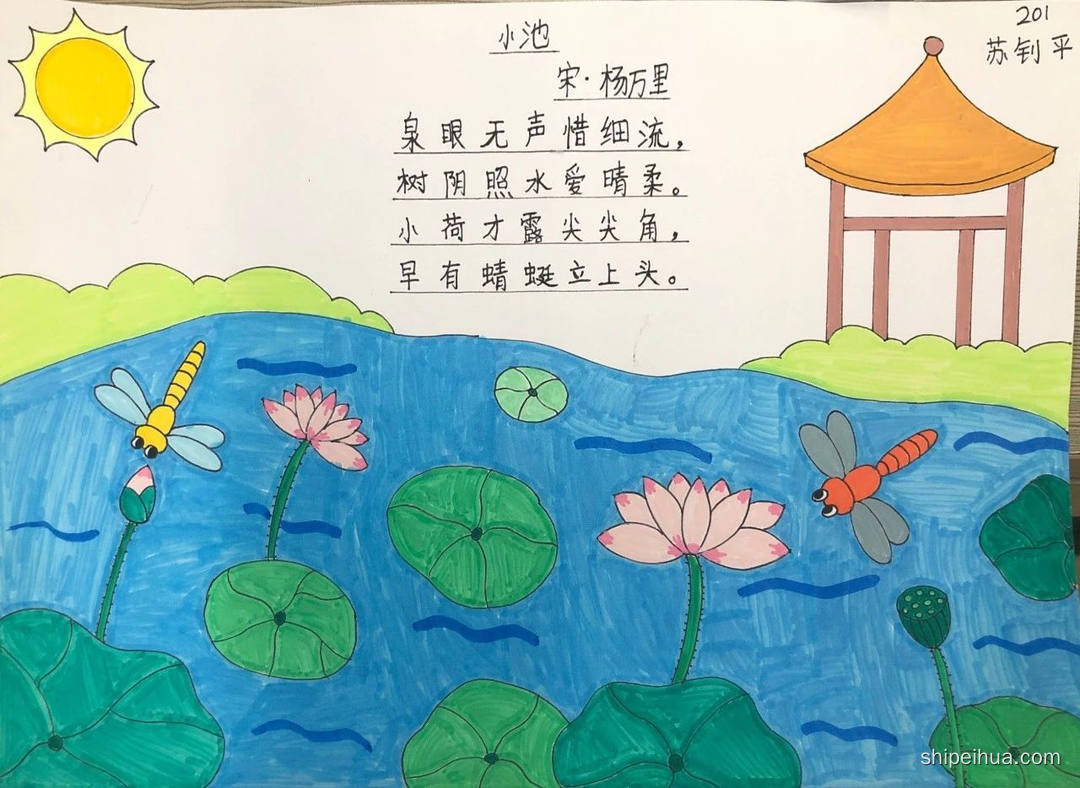 小池
宋·杨万里
泉眼无声惜细流，
树阴照水爱晴柔。
小荷才露尖尖角，
早有蜻蜓立上头。
201
苏钊平
shipeihua.com